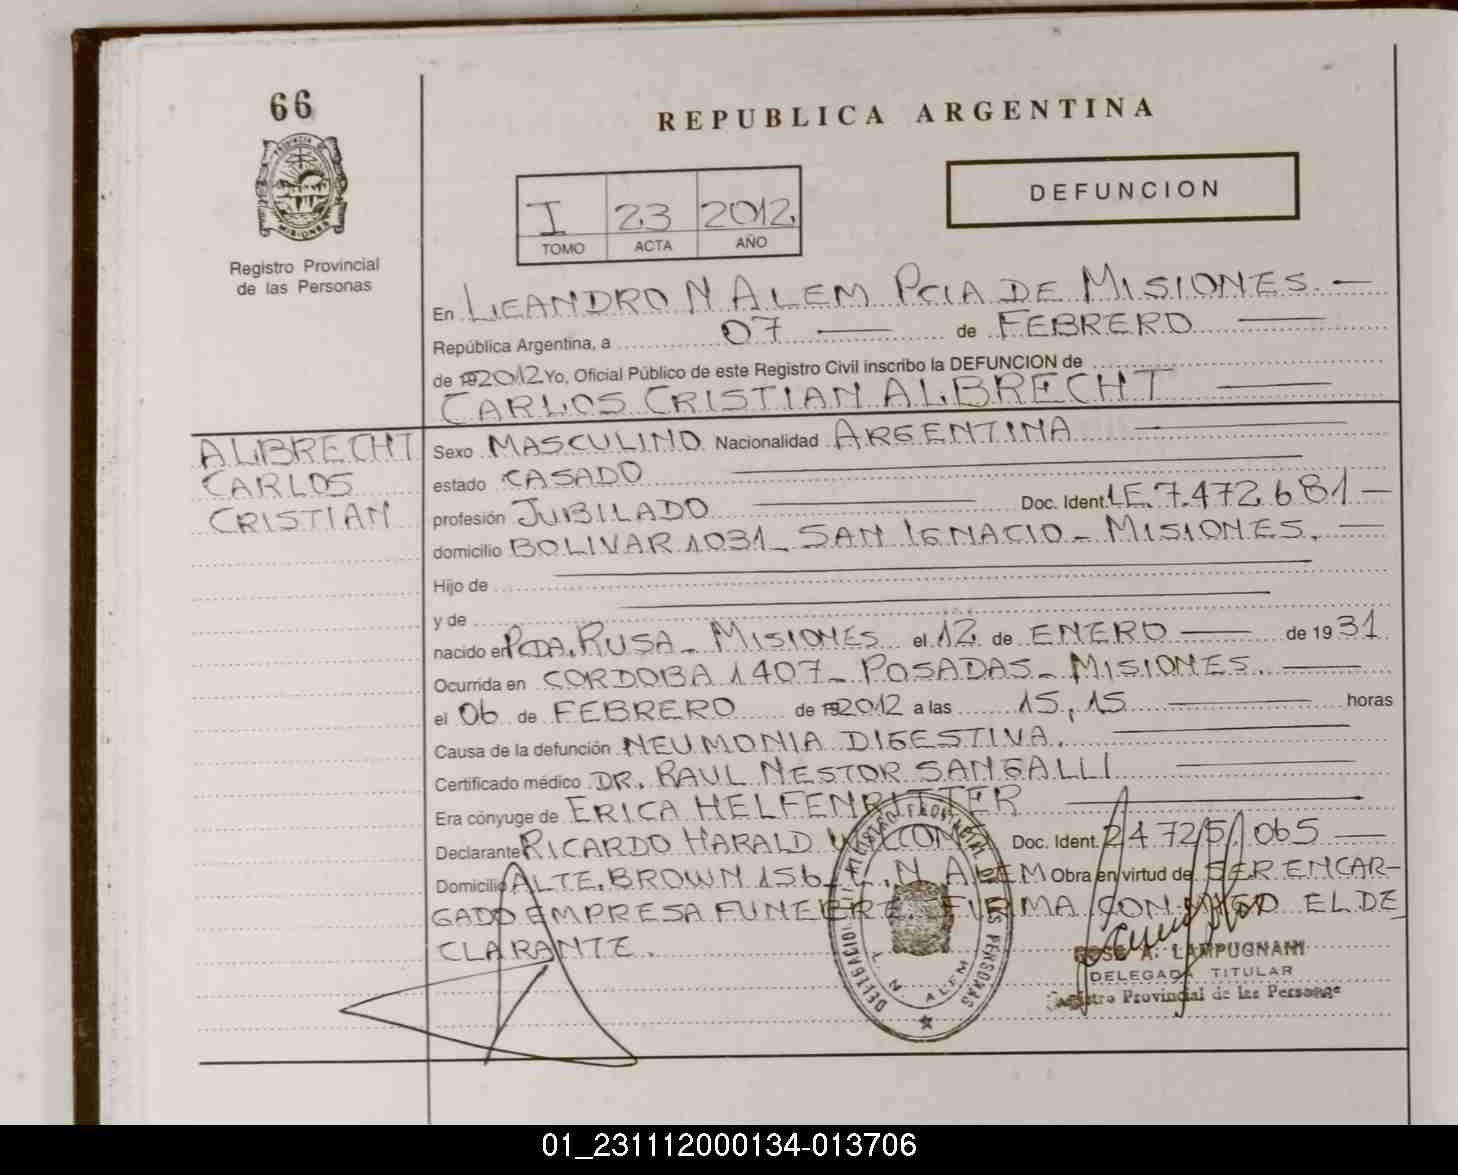 66
REPUBLICA ARGENTINA
DEFUNCION
I 23 2012
TOMO ACTA AÑO
PROVINCIA DE MISIONES
Registro Provincial
de las Personas
En LEANDRO N ALEM PCIA DE MISIONES. —
República Argentina, a 07 — de FEBRERO —
de 2012 Yo, Oficial Público de este Registro Civil inscribo la DEFUNCION de
CARLOS CRISTIAN ALBRECHT —
ALBRECHT
CARLOS
CRISTIAN
Sexo MASCULINO Nacionalidad ARGENTINA —
estado CASADO —
profesión JUBILADO — Doc. Ident. LE. 7.472.681 —
domicilio BOLIVAR 1031 - SAN IGNACIO - MISIONES. —
Hijo de —
y de —
nacido en PCDA. RUSA - MISIONES el 12 de ENERO — de 1931
Ocurrida en CORDOBA 1407 - POSADAS - MISIONES. —
el 06 de FEBRERO de 2012 a las 15,15 — horas
Causa de la defunción NEUMONIA DIGESTIVA. —
Certificado médico DR. RAUL NESTOR SANGALLI —
Era cónyuge de ERICA HELFENRITTER —
Declarante RICARDO HARALD Doc. Ident. 24.725.065 —
Domicilio ALTE. BROWN 156 - L. N. ALEM Obra en virtud de SER ENCAR-
GADO EMPRESA FUNEBRE. FIRMA CONMIGO EL DE
CLARANTE.
DELEGACION REGISTRO PROVINCIAL DE LAS PERSONAS
L. N. ALEM
JOSE A. LAMPUGNANI
DELEGADO TITULAR
Registro Provincial de las Personas
01_231112000134-013706